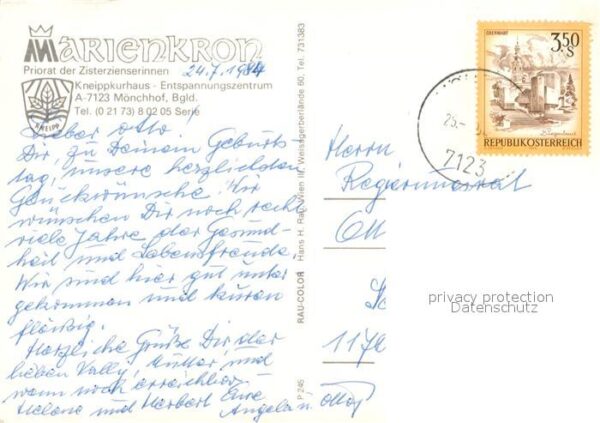 MARIENKRON
Priorat der Zisterzienserinnen
24.7.1984
Kneippkurhaus · Entspannungszentrum
A-7123 Mönchhof, Bgld.
Tel. (0 21 73) 8 02 05 Serie
KNEIPP
Lieber Otto!
Dir, zu Deinem Geburts-
tag, unsere herzlichsten
Glückwünsche. Wir
wünschen Dir noch recht
viele Jahre der Gesund-
heit und Lebensfreude.
Wir sind hier gut unter
gekommen und kuren
fleißig.
Herzliche Grüße Dir der
lieben Vally, Mutter, und
wenn noch erreichbar
Helene und Herbert Eure
Angela u. Otto
RAU-COLOR Hans H. Rau, Wien III, Weissgerberlände 60, Tel. 731383
P 245
3.50 S
REPUBLIK ÖSTERREICH
7123
Herrn
Regierungsrat
Ott
1170
privacy protection
Datenschutz